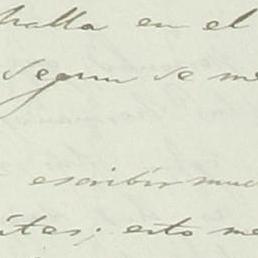 halla en el
Segun se me
escribir muc
ites; esto me